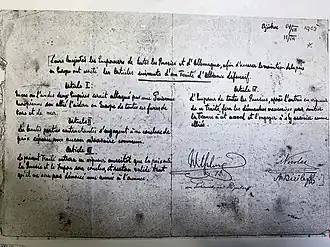 Björkoe 1905
Leurs Majestés les Empereurs de toutes les Russies et d'Allemagne, afin d'assurer le maintien de la paix
en Europe ont arrêté les Articles suivants d'un Traité d'Alliance défensif.
Article I.
un des deux Empires serait attaqué par une Puissance
européenne son allié l'aidera en Europe de toutes ses forces de
terre et de mer.
Article II.
Les hautes parties contractantes s'engagent à ne conclure de
paix séparée avec aucun adversaire commun.
Article III
Le présent Traité entrera en vigueur aussitôt que la paix entre
la Russie et le Japon sera conclue et restera valide tant
qu'il ne sera pas dénoncé une année à l'avance.
Article IV.
L'Empereur de toutes les Russies, après l'entrée en vigueur
de ce traité, fera les démarches nécessaires pour initier
la France à cet accord et l'engager à s'y associer comme
alliée.
Wilhelm
Nicolas